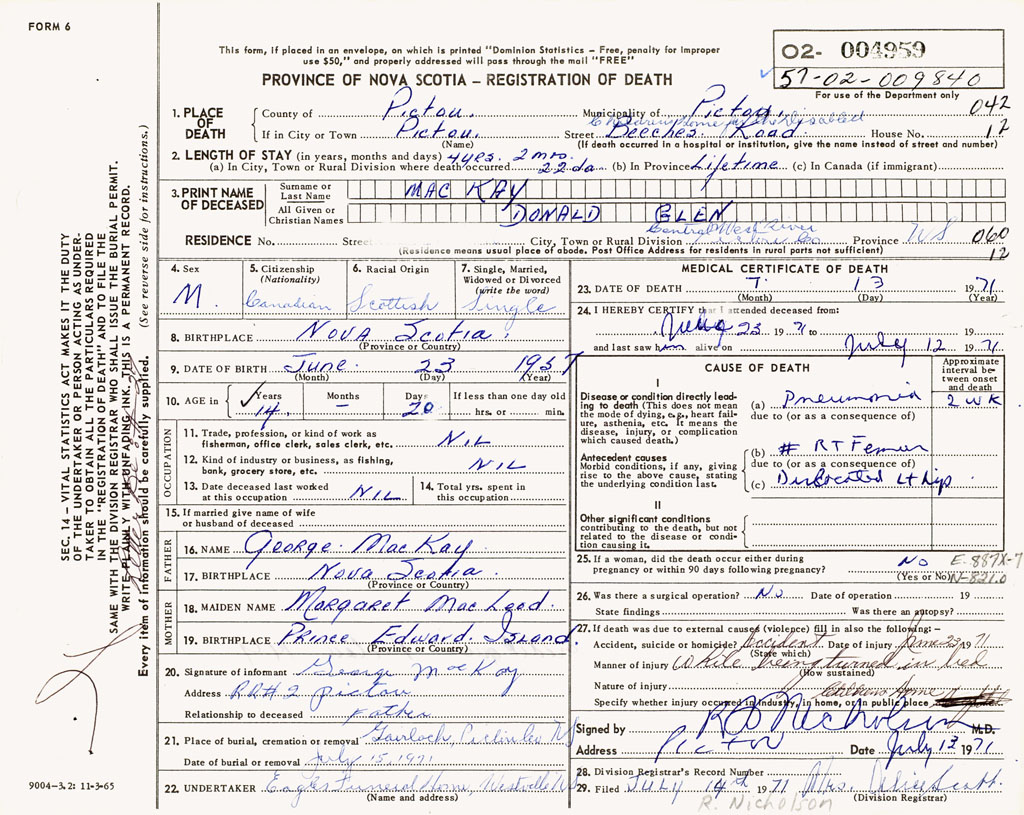 FORM 6
This form, if placed in an envelope, on which is printed "Dominion Statistics – Free, penalty for improper
use $50," and properly addressed will pass through the mail "FREE"
PROVINCE OF NOVA SCOTIA – REGISTRATION OF DEATH
02- 004959
57-02-009840
For use of the Department only
042
12
1. PLACE OF DEATH
County of Pictou. Municipality of Pictou.
Children's Home for the Disabled
If in City or Town Pictou. Street Beeches Road House No.
(Name) (If death occurred in a hospital or institution, give the name instead of street and number)
2. LENGTH OF STAY (in years, months and days) 4 yrs. 2 mos.
(a) In City, Town or Rural Division where death occurred 22 da (b) In Province Lifetime (c) In Canada (if immigrant)
3. PRINT NAME OF DECEASED
Surname or Last Name MAC KAY
All Given or Christian Names DONALD GLEN
Central West River
RESIDENCE No. Street City, Town or Rural Division Pictou Co Province NS 060
(Residence means usual place of abode. Post Office Address for residents in rural parts not sufficient) 12
4. Sex M.
5. Citizenship (Nationality) Canadian
6. Racial Origin Scottish
7. Single, Married, Widowed or Divorced (write the word) Single
8. BIRTHPLACE Nova Scotia.
(Province or Country)
9. DATE OF BIRTH June 23 1957
(Month) (Day) (Year)
10. AGE in Years 14. Months – Days 20 If less than one day old hrs. or min.
OCCUPATION
11. Trade, profession, or kind of work as fisherman, office clerk, sales clerk, etc. NIL
12. Kind of industry or business, as fishing, bank, grocery store, etc. NIL
13. Date deceased last worked at this occupation NIL
14. Total yrs. spent in this occupation
15. If married give name of wife or husband of deceased
FATHER
16. NAME George MacKay
17. BIRTHPLACE Nova Scotia
(Province or Country)
MOTHER
18. MAIDEN NAME Margaret MacLeod.
19. BIRTHPLACE Prince Edward Island
(Province or Country)
20. Signature of informant George MacKay
Address RR# 2 Pictou
Relationship to deceased Father
21. Place of burial, cremation or removal Gairloch, Pictou Co NS
Date of burial or removal July 15, 1971
22. UNDERTAKER Eagles Funeral Home, Westville NS
(Name and address)
MEDICAL CERTIFICATE OF DEATH
23. DATE OF DEATH 7. 13 1971
(Month) (Day) (Year)
24. I HEREBY CERTIFY that I attended deceased from:
23 1971 to 19
and last saw him alive on July 12 1971
CAUSE OF DEATH
Approximate interval between onset and death
I
Disease or condition directly leading to death (This does not mean the mode of dying, e.g., heart failure, asthenia, etc. It means the disease, injury, or complication which caused death.)
(a) Pneumonia 2 wk
due to (or as a consequence of)
Antecedent causes
Morbid conditions, if any, giving rise to the above cause, stating the underlying condition last.
(b) # RT Femur
due to (or as a consequence of)
(c) Dislocated Lt hip
II
Other significant conditions contributing to the death, but not related to the disease or condition causing it.
25. If a woman, did the death occur either during pregnancy or within 90 days following pregnancy? No
(Yes or No)
E-887X-7
N-821.0
26. Was there a surgical operation? No Date of operation 19
State findings Was there an autopsy?
27. If death was due to external causes (violence) fill in also the following: –
Accident, suicide or homicide? Accident Date of injury June 23 1971
(State which)
Manner of injury While being turned in bed
(How sustained)
Nature of injury
Childrens Home
Specify whether injury occurred in industry, in home, or in public place
Signed by R D Nicholson M.D.
Address Pictou Date July 13 1971
28. Division Registrar's Record Number
29. Filed JULY 14th 1971 Mrs. Scott.
(Division Registrar)
R. Nicholson
SEC. 14 – VITAL STATISTICS ACT MAKES IT THE DUTY
OF THE UNDERTAKER OR PERSON ACTING AS UNDER-
TAKER TO OBTAIN ALL THE PARTICULARS REQUIRED
IN THE "REGISTRATION OF DEATH" AND TO FILE THE
SAME WITH THE DIVISION REGISTRAR WHO SHALL ISSUE THE BURIAL PERMIT.
WRITE PLAINLY WITH UNFADING INK. THIS IS A PERMANENT RECORD.
Every item of information should be carefully supplied. (See reverse side for instructions.)
9004-3.2: 11-3-65